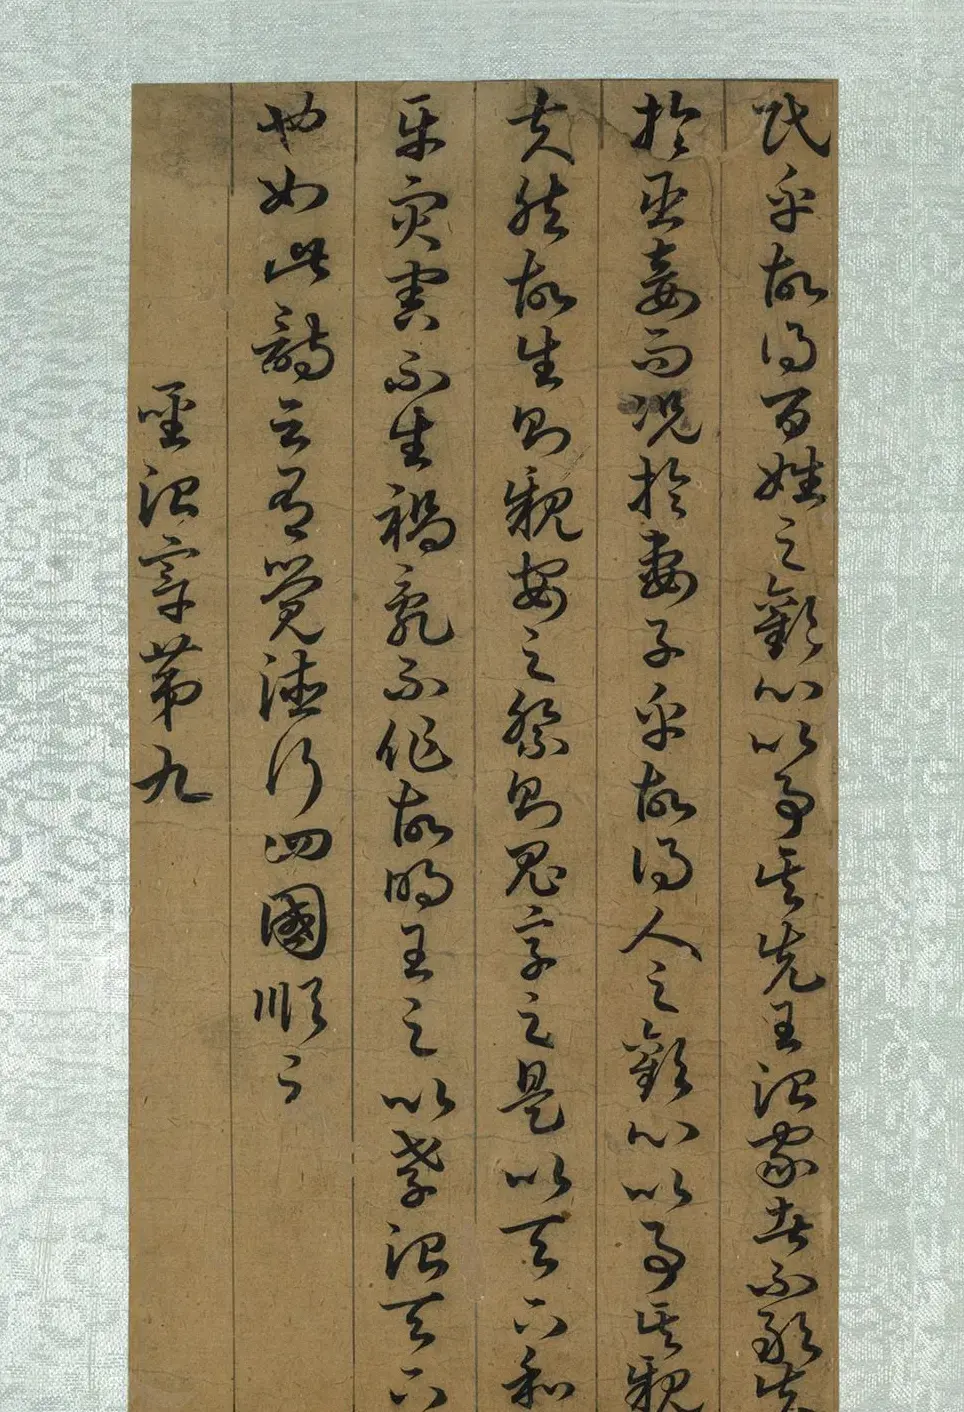 民乎故得百姓之歡心以事其先王治家者不敢失
於臣妾而況於妻子乎故得人之歡心以事其親
夫然故生則親安之祭則鬼享之是以天下和
平灾害不生禍亂不作故明王之以孝治天下
也如此詩云有覺德行四國順之
聖治章第九